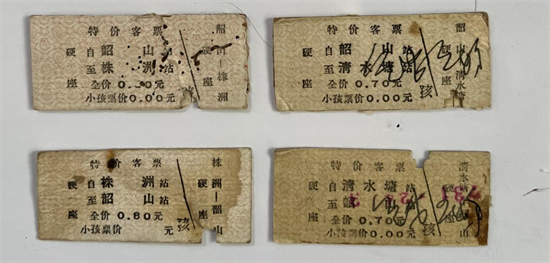 特价客票
硬座
自韶山站
至株洲站
全价0.80元
小孩票价0.00元
孩
韶山—株洲
特价客票
硬座
自韶山站
至清水塘站
全价0.70元
小孩票价0.00元
孩
韶山
清水塘
特价客票
硬座
自株洲站
至韶山站
全价0.80元
小孩票价 元
孩
株洲—韶山
硬
特价客票
硬座
自清水塘站
全价0.70元
小孩票价0.00元
孩
清水
山